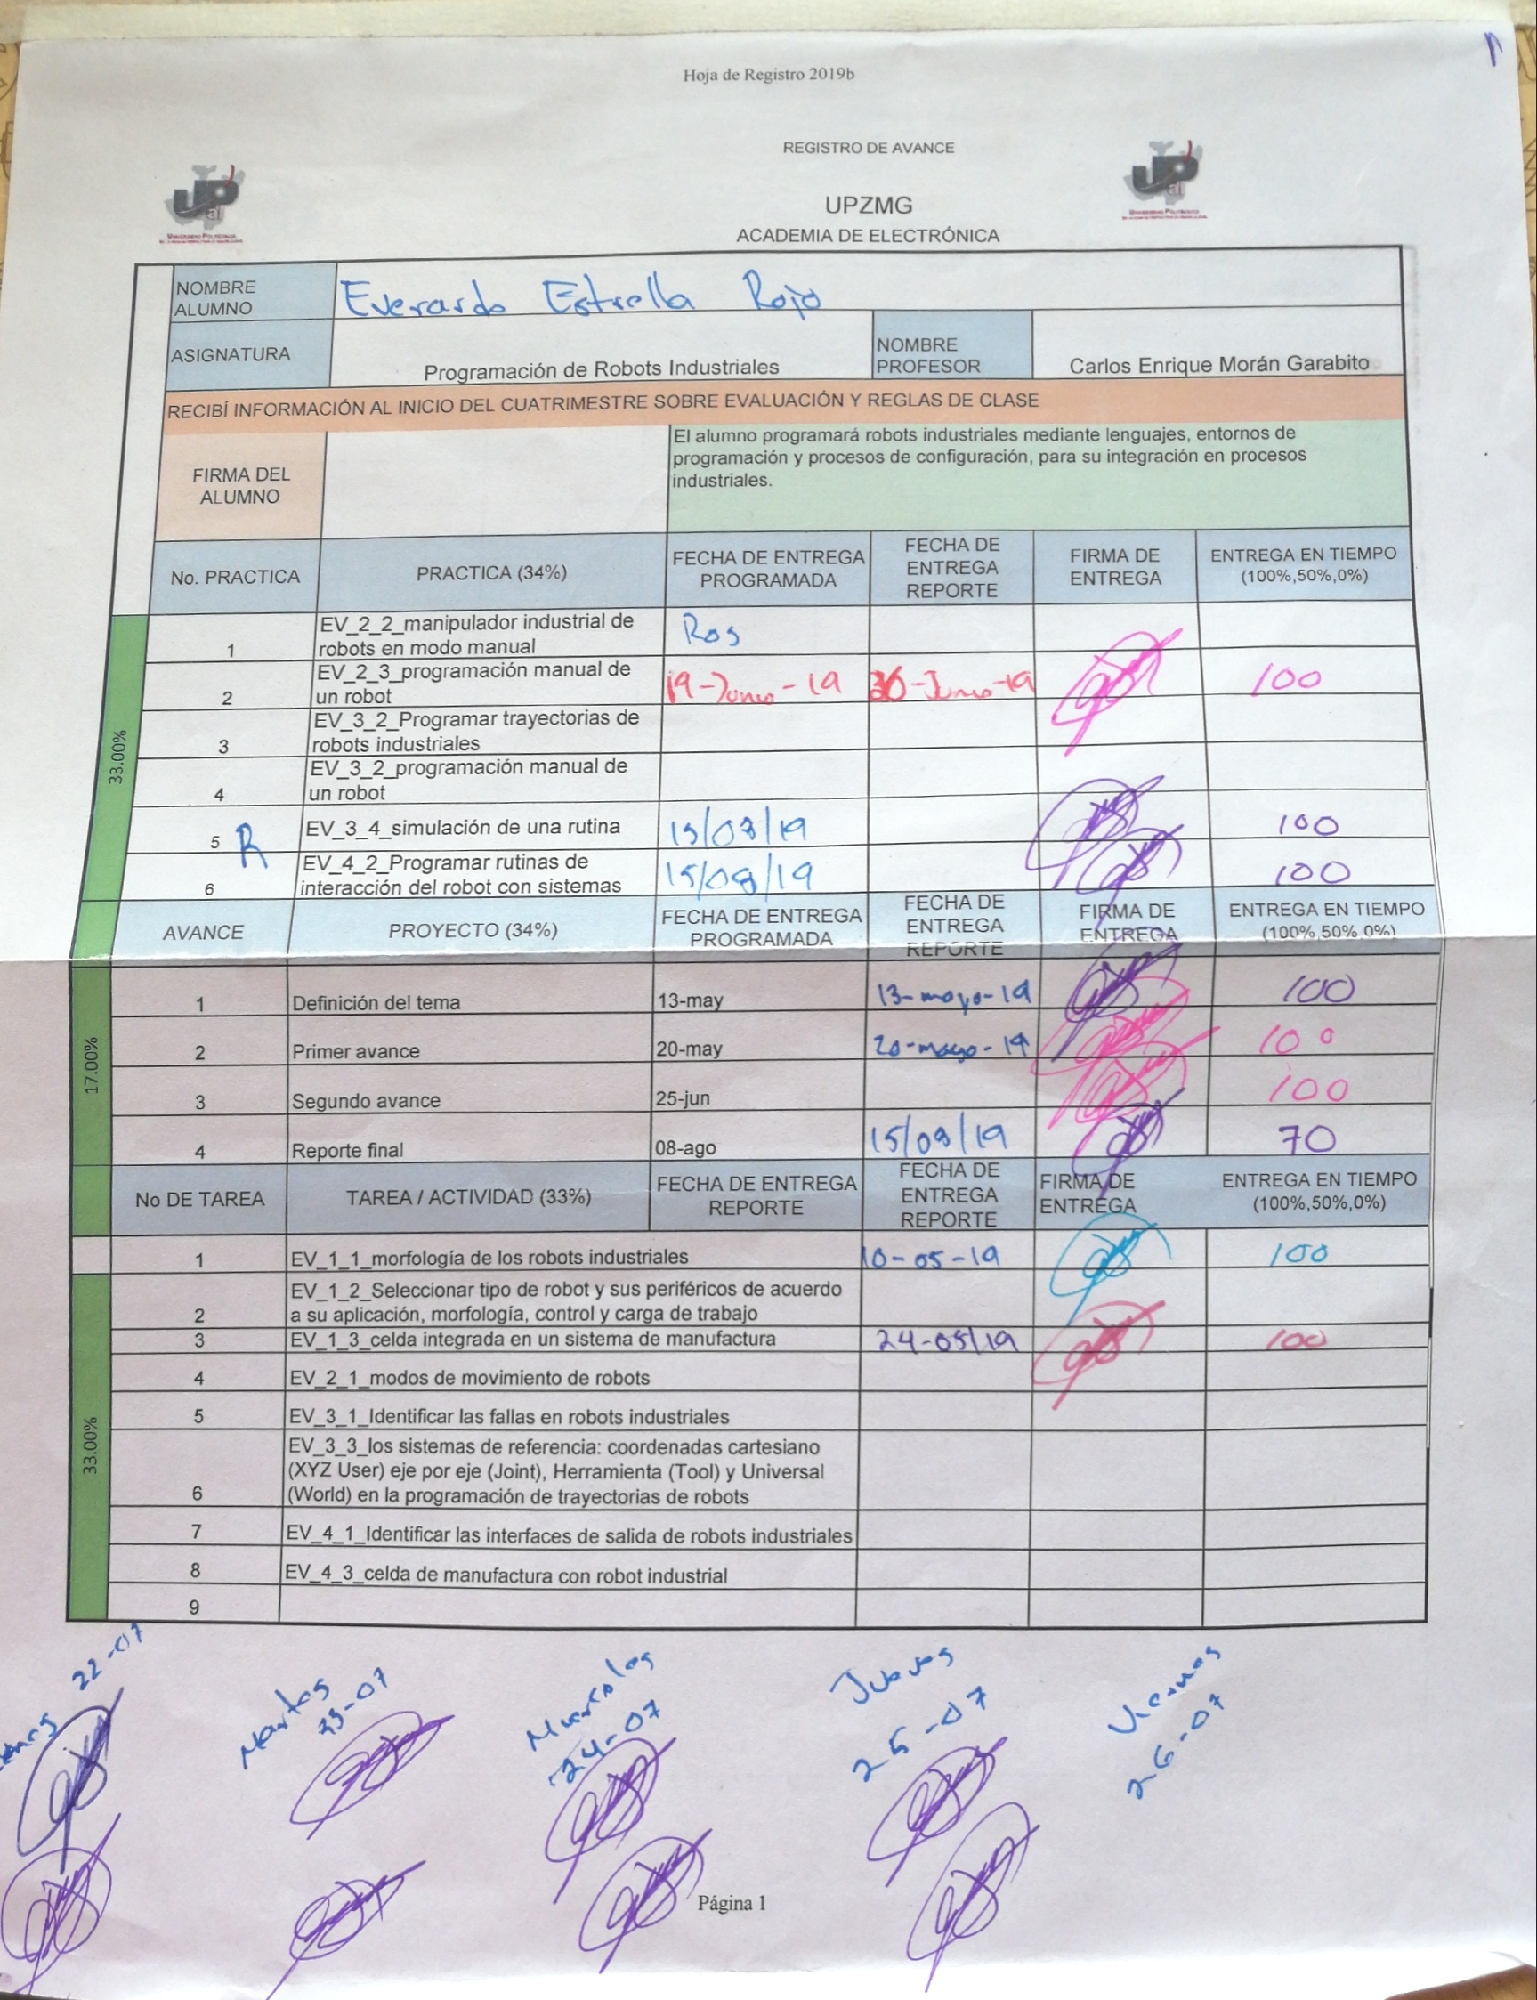 Hoja de Registro 2019b
REGISTRO DE AVANCE
UPZMG
ACADEMIA DE ELECTRÓNICA
NOMBRE ALUMNO Everardo Estrella Rojo
ASIGNATURA Programación de Robots Industriales NOMBRE PROFESOR Carlos Enrique Morán Garabito
RECIBÍ INFORMACIÓN AL INICIO DEL CUATRIMESTRE SOBRE EVALUACIÓN Y REGLAS DE CLASE
FIRMA DEL ALUMNO
El alumno programará robots industriales mediante lenguajes, entornos de
programación y procesos de configuración, para su integración en procesos
industriales.
No. PRACTICA PRACTICA (34%) FECHA DE ENTREGA PROGRAMADA FECHA DE ENTREGA REPORTE FIRMA DE ENTREGA ENTREGA EN TIEMPO (100%,50%,0%)
33.00%
1 EV_2_2_manipulador industrial de robots en modo manual Ros
2 EV_2_3_programación manual de un robot 19-Junio-19 -Junio-19 100
3 EV_3_2_Programar trayectorias de robots industriales
4 EV_3_2_programación manual de un robot
5 R EV_3_4_simulación de una rutina 15/08/19 100
6 EV_4_2_Programar rutinas de interacción del robot con sistemas 15/08/19 100
AVANCE PROYECTO (34%) FECHA DE ENTREGA PROGRAMADA FECHA DE ENTREGA REPORTE FIRMA DE ENTREGA ENTREGA EN TIEMPO (100%,50%,0%)
17.00%
1 Definición del tema 13-may 13-mayo-19 100
2 Primer avance 20-may 20-mayo-19 100
3 Segundo avance 25-jun 100
4 Reporte final 08-ago 15/08/19 70
No DE TAREA TAREA / ACTIVIDAD (33%) FECHA DE ENTREGA REPORTE FECHA DE ENTREGA REPORTE FIRMA DE ENTREGA ENTREGA EN TIEMPO (100%,50%,0%)
33.00%
1 EV_1_1_morfología de los robots industriales 10-05-19 100
2 EV_1_2_Seleccionar tipo de robot y sus periféricos de acuerdo
a su aplicación, morfología, control y carga de trabajo
3 EV_1_3_celda integrada en un sistema de manufactura 24-05/19 100
4 EV_2_1_modos de movimiento de robots
5 EV_3_1_Identificar las fallas en robots industriales
6 EV_3_3_los sistemas de referencia: coordenadas cartesiano
(XYZ User) eje por eje (Joint), Herramienta (Tool) y Universal
(World) en la programación de trayectorias de robots
7 EV_4_1_Identificar las interfaces de salida de robots industriales
8 EV_4_3_celda de manufactura con robot industrial
9
22-07
Martes 23-07
Miercoles 24-07
Jueves 25-07
Viernes 26-07
Página 1